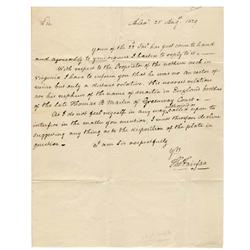 Sir
Alexa. 25 Aug. 1829
Yours of the 22 Inst has just come to hand
and agreeably to your request I hasten to reply to it —
With respect to the Proprietor of the northern neck in
Virginia I have to inform you that he was no Ancestor of
mine but only a distant relation. His nearest relations
are his nephews of the name of Martin in England brothers
of the late Thomas B. Martin of Greenway Court.
As I do not feel myself in any way called upon to
interfere in the matter you mention, I must therefore decline
suggesting any thing as to the disposition of the plate in
question.
I am Sir respectfully
Yrs
Tho Fairfax